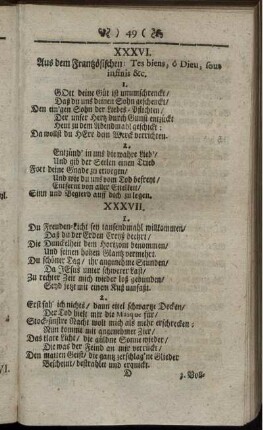 49
XXXVI.
Aus dem Frantzösischen: Tes biens, ô Dieu, sous
infinis &c.
1.
GOtt deine Güt ist unumschrenckt,
Daß du uns deinen Sohn geschenckt,
Den ein'gen Sohn der Liebs-Pflichten,
Der unser Hertz durch Gunst entzückt
Heut zu dem Abendmahl geschickt:
Da wollst du HErr dein Werck verrichten.
2.
Entzünd' in uns die wahre Lieb'
Und gib der Seelen einen Trieb
Fort deine Gnade zu erwegen,
Und wie du uns vom Tod befreyt,
Entfernt von aller Eitelkeit,
Sinn und Begierd auf dich zu legen.
XXXVII.
1.
Du Freuden-Licht sey tausendmahl willkommen,
Daß du der Erden Creyß bezirt,
Die Dunckelheit dem Horizont benommen,
Und seinen hohen Glantz vermehrt.
Du schöner Tag, ihr angenehme Stunden,
Da JEsus unter schwerer Last,
Zu rechter Zeit mich wieder loß gebunden,
Seyd jetzt mit einem Kuß umfaßt.
2.
Erst sah' ich nichts, dann eitel schwartze Decken,
Der Tod ließ mir die Masque für,
Stock-finstre Nacht wolt mich als mehr erschrecken:
Nun kommt mir angenehmer Zier
Das klare Licht, die güldne Sonne wieder,
Die was der Feind an mir verrückt,
Den matten Geist, die gantz zerschlag'ne Glieder
Bescheint, bestrahlet und erquickt.
D
3. Voll-